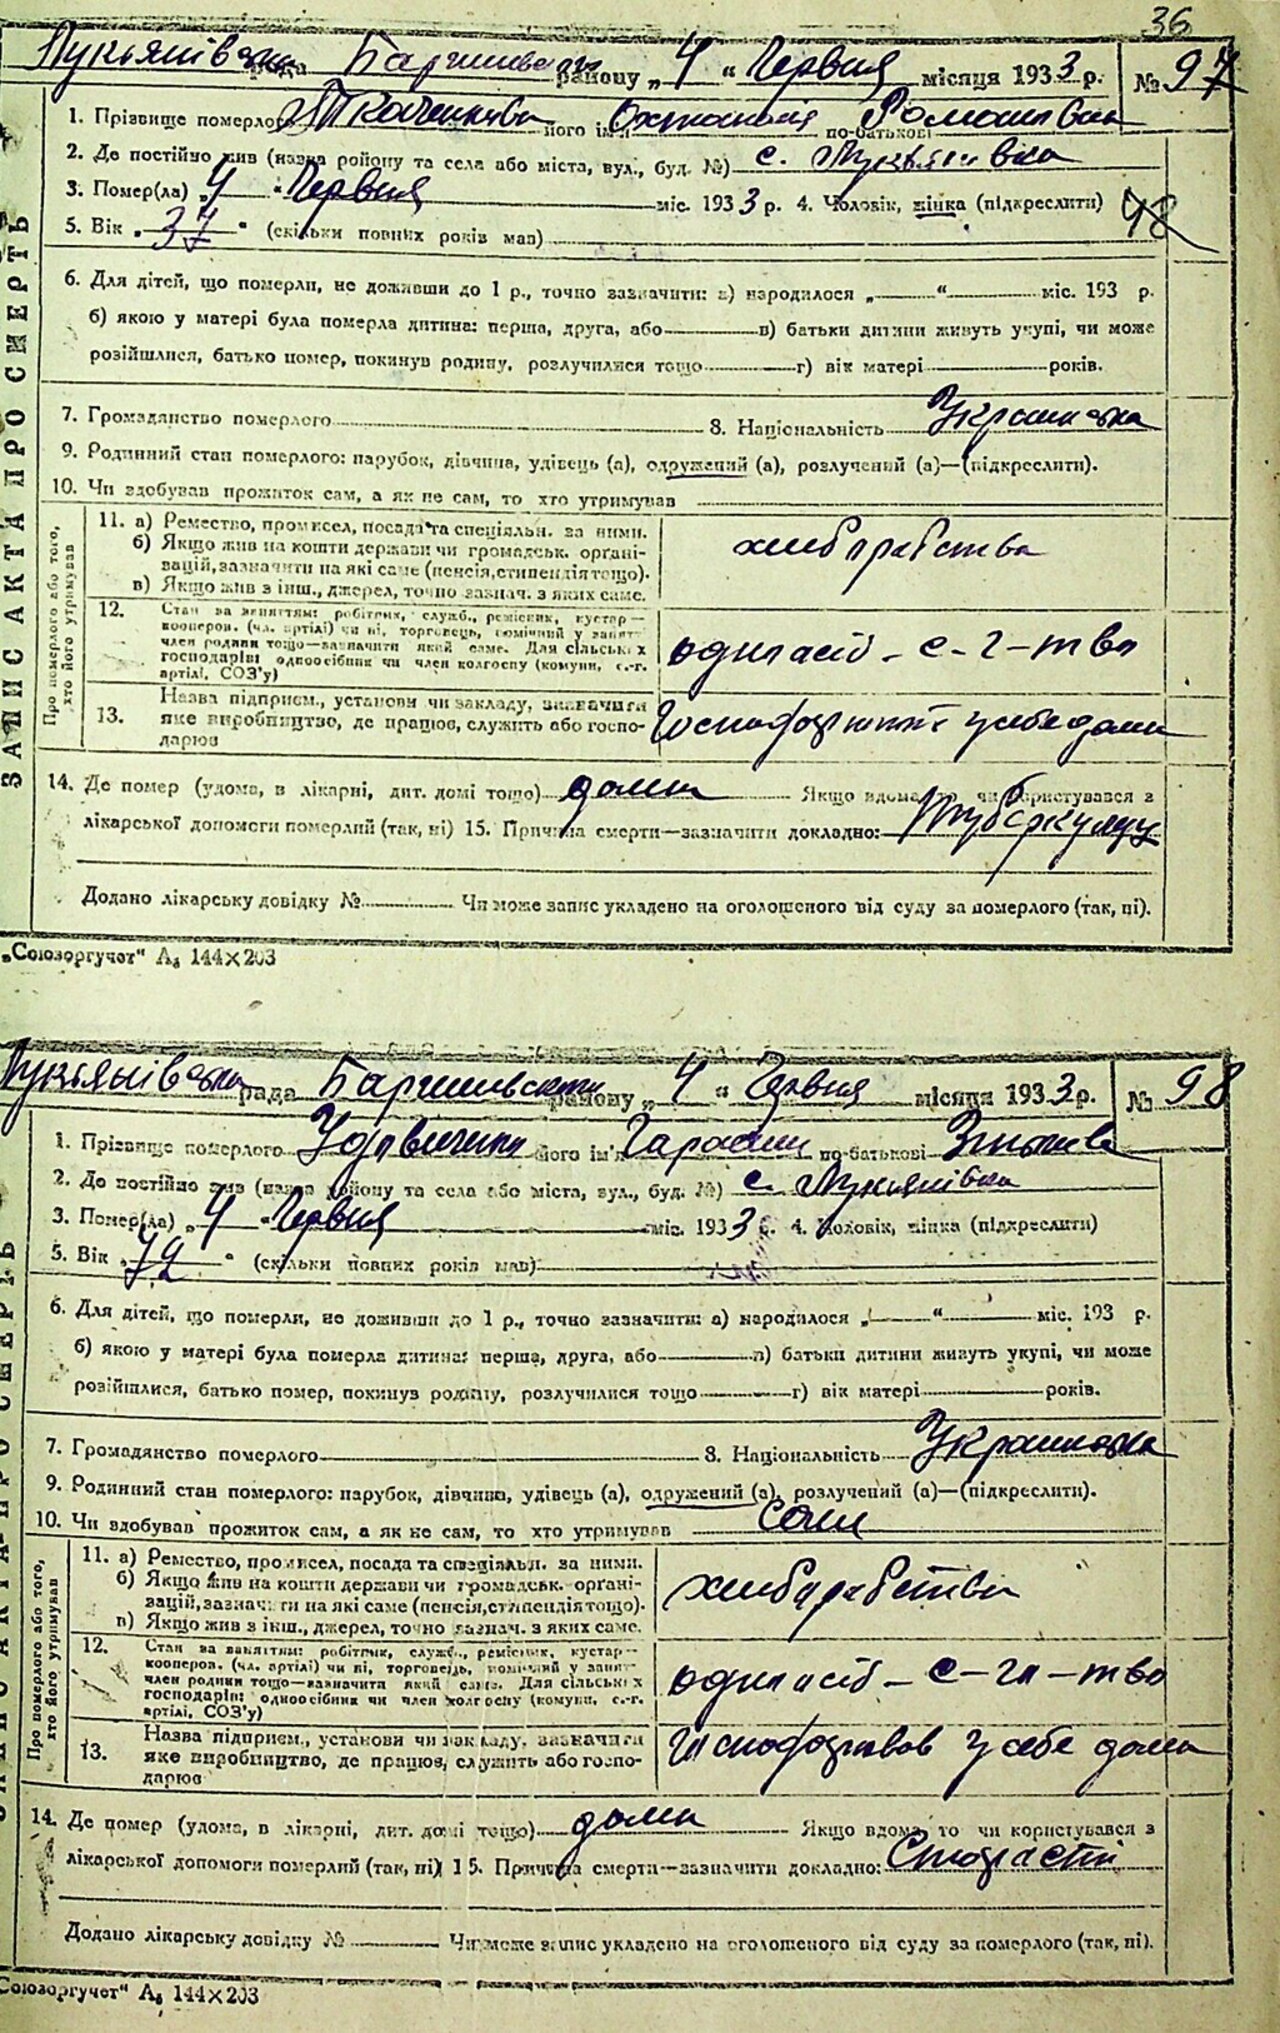 36
Лукьянівська рада Баришевськ району „4“ Червня місяця 1933 р. № 97
ЗАПИС АКТА ПРО СМЕРТЬ
1. Прізвище померлого Ткаченкова його ім'я по-батькові Романівна
2. Де постійно жив (назва ройону та села або міста, вул., буд. №) с. Лукьянівка
3. Помер(ла) „4“ Червня міс. 1933 р. 4. Чоловік, жінка (підкреслити)
5. Вік „37“ (скільки повних років мав)
6. Для дітей, що померли, не доживши до 1 р., точно зазначити: а) народилося „ “ міс. 193 р.
б) якою у матері була померла дитина: перша, друга, або в) батьки дитини живуть укупі, чи може
розійшлися, батько помер, покинув родину, розлучилися тощо г) вік матері років.
7. Громадянство померлого 8. Національність Українська
9. Родинний стан померлого: парубок, дівчина, удівець (а), одружений (а), розлучений (а)—(підкреслити).
10. Чи здобував прожиток сам, а як не сам, то хто утримував
Про померлого або того, хто його утримував
11. а) Ремество, промисел, посада та спеціяльн. за ними.
б) Якщо жив на кошти держави чи громадськ. органі-
зацій, зазначити на які саме (пенсія, стипендія тощо).
в) Якщо жив з інш., джерел, точно зазнач. з яких саме.
хлеборобства
12. Стан за заняттям: робітник, служб., ремісник, кустар—
кооперов. (чл. артілі) чи ні, торговець, помічний у занят-
член родини тощо—зазначити який саме. Для сільських
господарів: одноосібник чи член колгоспу (комуни, с.-г.
артілі, СОЗ'у)
с-г-тво
13. Назва підприєм., установи чи закладу, зазначити
яке виробництво, де працює, служить або госпо-
дарює
у себе дома
14. Де помер (удома, в лікарні, дит. домі тощо) дома Якщо вдома, то чи користувався з
лікарської допомоги померлий (так, ні) 15. Причина смерти—зазначити докладно: Туберкулуз
Додано лікарську довідку № Чи може запис укладено на оголошеного від суду за померлого (так, ні).
„Союзоргучот“ А₆ 144×203
Лукьянівська рада Баришевськи району „4“ Червня місяця 1933 р. № 98
ЗАПИС АКТА ПРО СМЕРТЬ
1. Прізвище померлого Удовиченко його ім'я по-батькові
2. Де постійно жив (назва ройону та села або міста, вул., буд. №) с. Лукьянівка
3. Помер(ла) „4“ Червня міс. 1933 р. 4. Чоловік, жінка (підкреслити)
5. Вік „72“ (скільки повних років мав)
6. Для дітей, що померли, не доживши до 1 р., точно зазначити: а) народилося „ “ міс. 193 р.
б) якою у матері була померла дитина: перша, друга, або в) батьки дитини живуть укупі, чи може
розійшлися, батько помер, покинув родину, розлучилися тощо г) вік матері років.
7. Громадянство померлого 8. Національність Українська
9. Родинний стан померлого: парубок, дівчина, удівець (а), одружений (а), розлучений (а)—(підкреслити).
10. Чи здобував прожиток сам, а як не сам, то хто утримував Сам
Про померлого або того, хто його утримував
11. а) Ремество, промисел, посада та спеціяльн. за ними.
б) Якщо жив на кошти держави чи громадськ. органі-
зацій, зазначити на які саме (пенсія, стипендія тощо).
в) Якщо жив з інш., джерел, точно зазнач. з яких саме.
хлеборобства
12. Стан за заняттям: робітник, служб., ремісник, кустар—
кооперов. (чл. артілі) чи ні, торговець, помічний у занят-
член родини тощо—зазначити який саме. Для сільських
господарів: одноосібник чи член колгоспу (комуни, с.-г.
артілі, СОЗ'у)
13. Назва підприєм., установи чи закладу, зазначити
яке виробництво, де працює, служить або госпо-
дарює
у себе дома
14. Де помер (удома, в лікарні, дит. домі тощо) дома Якщо вдома, то чи користувався з
лікарської допомоги померлий (так, ні) 15. Причина смерти—зазначити докладно:
Додано лікарську довідку № Чи може запис укладено на оголошеного від суду за померлого (так, ні).
Союзоргучот“ А₆ 144×203